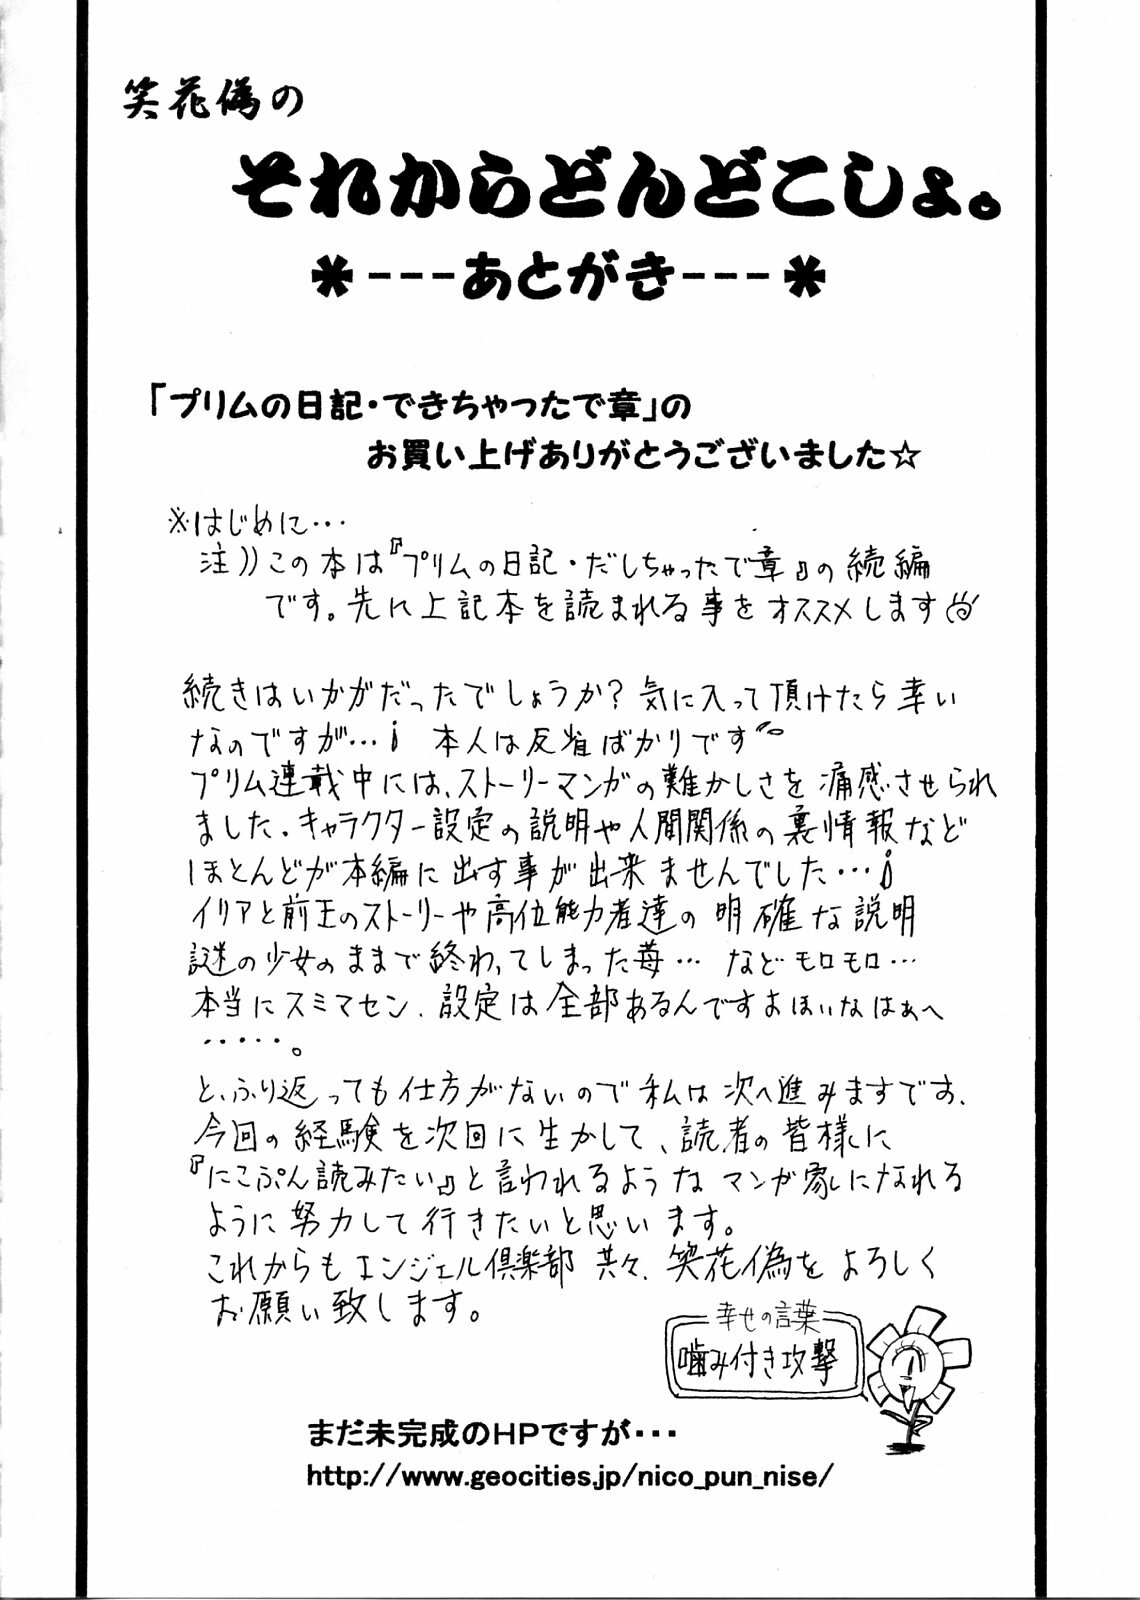 笑花偽の
それからどんどこしょ。
*---あとがき---*
「プリムの日記・できちゃったで章」の
お買い上げありがとうございました☆
※はじめに…
注))この本は『プリムの日記・だしちゃったで章』の続編
です。先に上記本を読まれる事をオススメします
続きはいかがだったでしょうか?気に入って頂けたら幸い
なのですが…i 本人は反省ばかりです
プリム連載中には、ストーリーマンガの難かしさを痛感させられ
ました。キャラクター設定の説明や人間関係の裏情報など
ほとんどが本編に出す事が出来ませんでした…i
イリアと前王のストーリーや高位能力者達の明確な説明
謎の少女のままで終わってしまった苺…などモロモロ…
本当にスミマセン、設定は全部あるんですよほいなはぁへ
・・・・・。
と、ふり返っても仕方がないので私は次へ進みますです、
今回の経験を次回に生かして、読者の皆様に
『にこぷん読みたい』と言われるようなマンガ家になれる
ように努力して行きたいと思います。
これからもエンジェル倶楽部共々、笑花偽をよろしく
お願い致します。
幸せの言葉
噛み付き攻撃
まだ未完成のHPですが・・・
http://www.geocities.jp/nico_pun_nise/